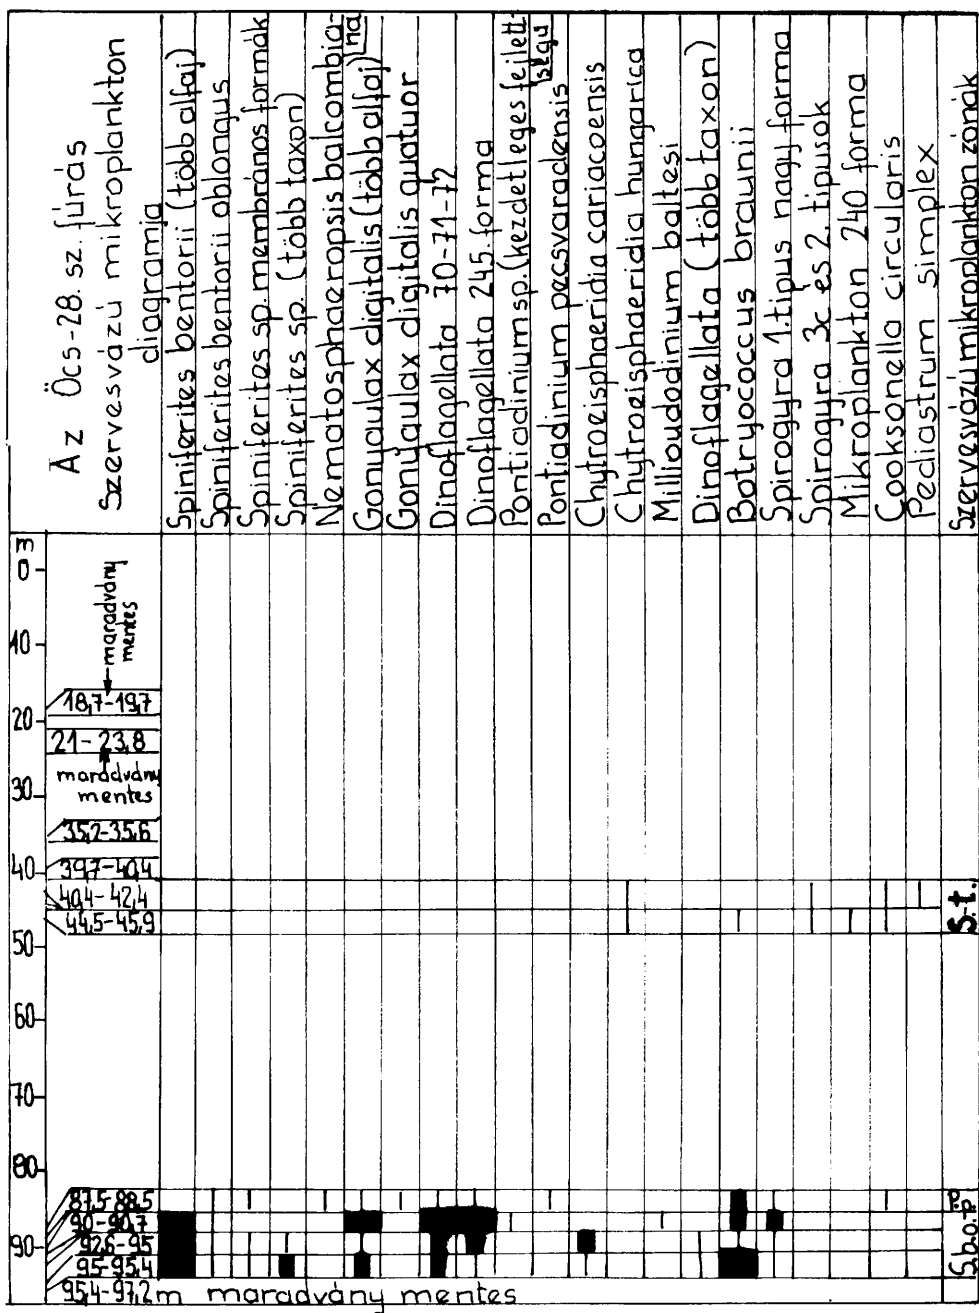 Az Öcs-28. sz. fúrás
Szervesvázú mikroplankton
diagramja
Spiniferites bentorii (több alfaj)
Spiniferites bentorii oblongus
Spiniferites sp. membrános formák
Spiniferites sp. (több taxon)
Nematosphaeropsis balcombia-
na
Gonyaulax digitalis (több alfaj)
Gonyaulax digitalis quatuor
Dinoflagellata 70-71-72
Dinoflagellata 245. forma
Pontiadinium sp. (kezdetleges fejlett-
ségű
Pontiadinium pecsvaradensis
Chytroeisphaeridia cariacoensis
Chytroeisphaeridia hungarica
Millioudodinium baltesi
Dinoflagellata (több taxon)
Botryococcus braunii
Spirogyra 1. tipus nagy forma
Spirogyra 3c és 2. tipusok
Mikroplankton 240 forma
Cooksonella circularis
Pediastrum simplex
Szervesvázú mikroplankton zónák
m
0
10
20
30
40
50
60
70
80
90
maradvány
mentes
18,7-19,7
21-23,8
maradvány
mentes
35,2-35,6
39,7-40,4
40,4-42,4
44,5-45,9
S.-t.
87,5-88,5
90-90,7
92,6-95
95-95,4
95,4-97,2 m maradvány mentes
P.p.
S.b.o.-P.